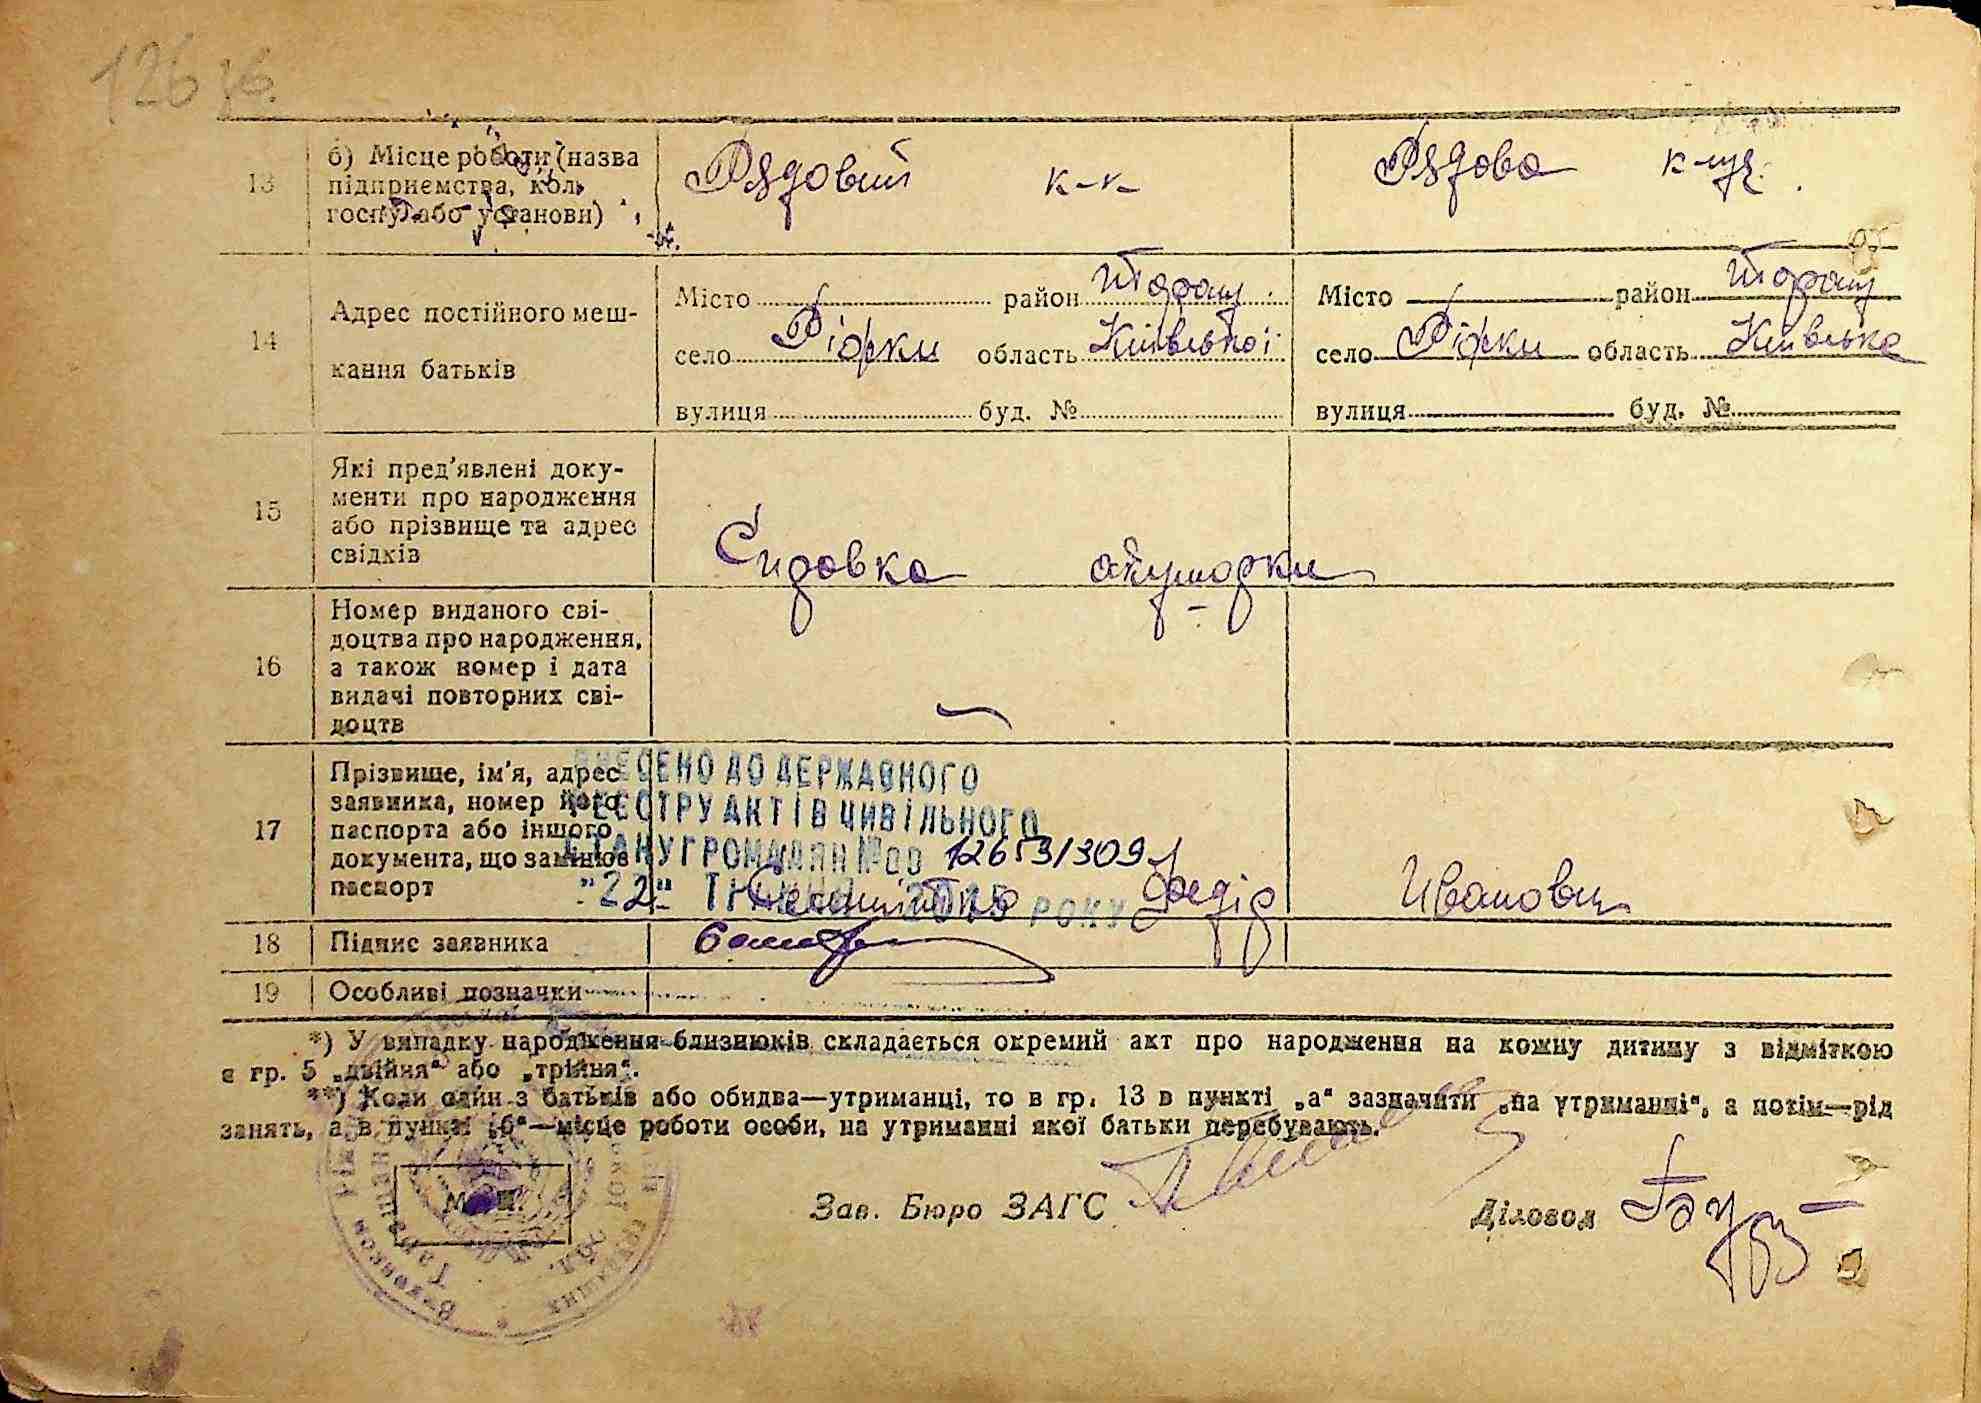 126 зв.
13
б) Місце роботи (назва
підприємства, кол-
госпу або установи)
Рядовий к-к
Рядова
14
Адрес постійного меш-
кання батьків
Місто район
село Ріжки область Київської
вулиця буд. №
Місто район
село Ріжки область Київська
вулиця буд. №
15
Які пред'явлені доку-
менти про народження
або прізвище та адрес
свідків
акушорки
16
Номер виданого сві-
доцтва про народження,
а також номер і дата
видачі повторних сві-
доцтв
17
Прізвище, ім'я, адрес
заявника, номер його
паспорта або іншого
документа, що замінює
паспорт
ВНЕСЕНО ДО ДЕРЖАВНОГО
РЕЄСТРУ АКТІВ ЦИВІЛЬНОГО
СТАНУ ГРОМАДЯН №00 12653/309
"22" ТРАВНЯ 2015 РОКУ
Федір Іванович
18
Підпис заявника
19
Особливі позначки
*) У випадку народження близнюків складається окремий акт про народження на кожну дитину з відміткою
в гр. 5 „двійня“ або „трійня“.
**) Коли один з батьків або обидва—утриманці, то в гр. 13 в пункті „а“ зазначити „на утриманні“, а потім—рід
занять, а в пункті „б“—місце роботи особи, на утриманні якої батьки перебувають.
М. П.
Зав. Бюро ЗАГС
Діловод